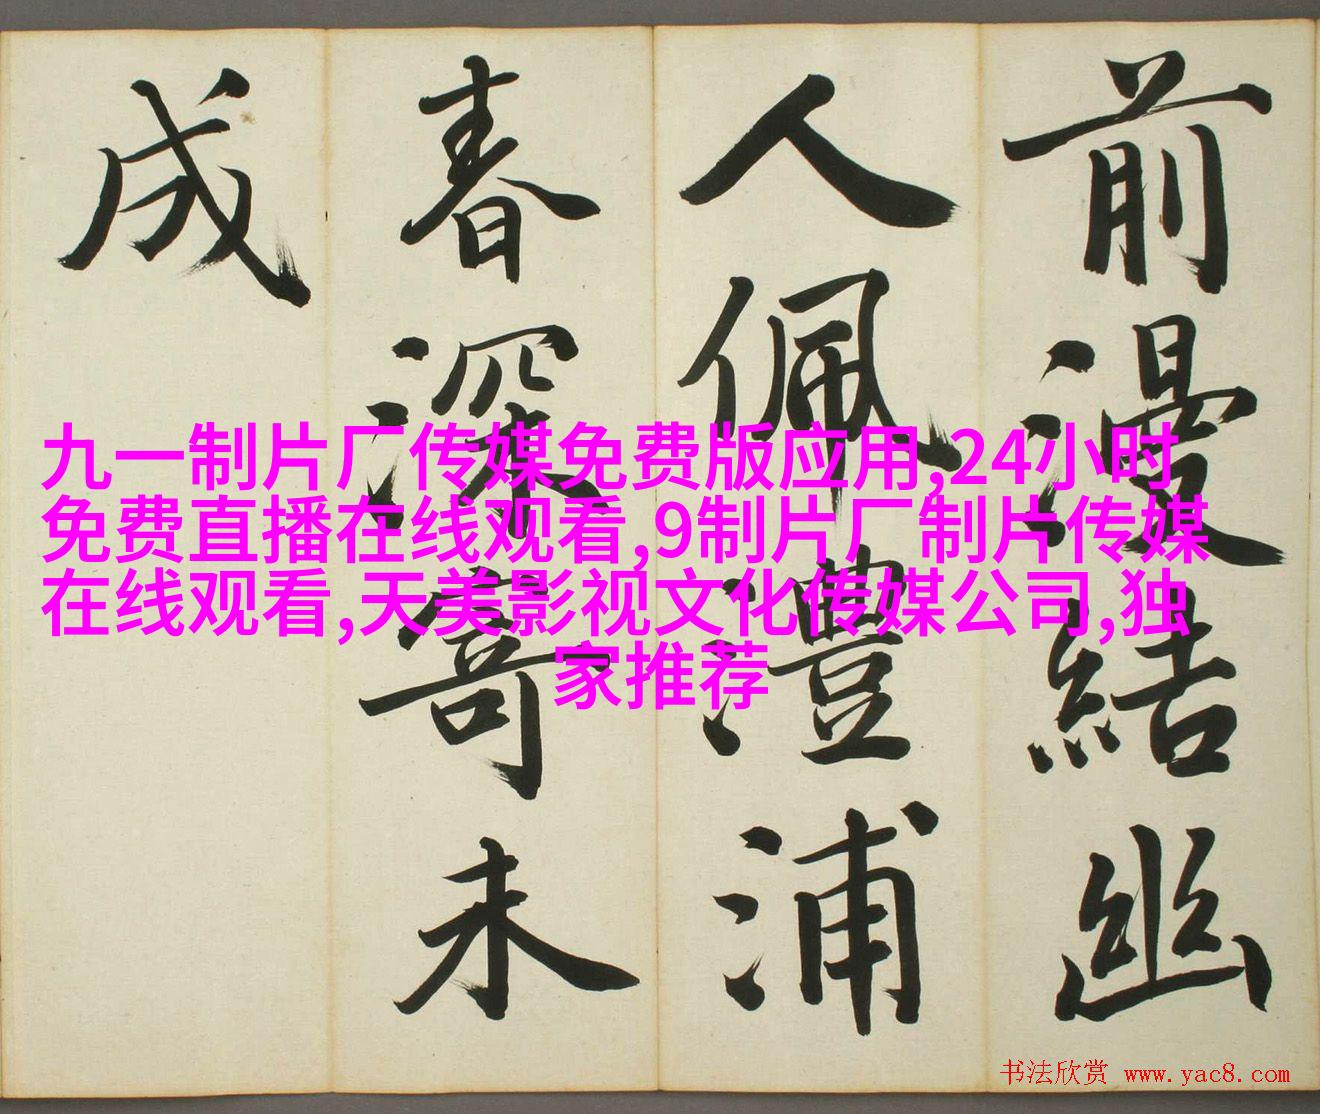 前漫結幽
人佩澧浦
春深寄未
成
九一制片厂传媒免费版应用,24小时
免费直播在线观看,9制片厂制片传媒
在线观看,天美影视文化传媒公司,独
家推荐
书法欣赏 www.yac8.com